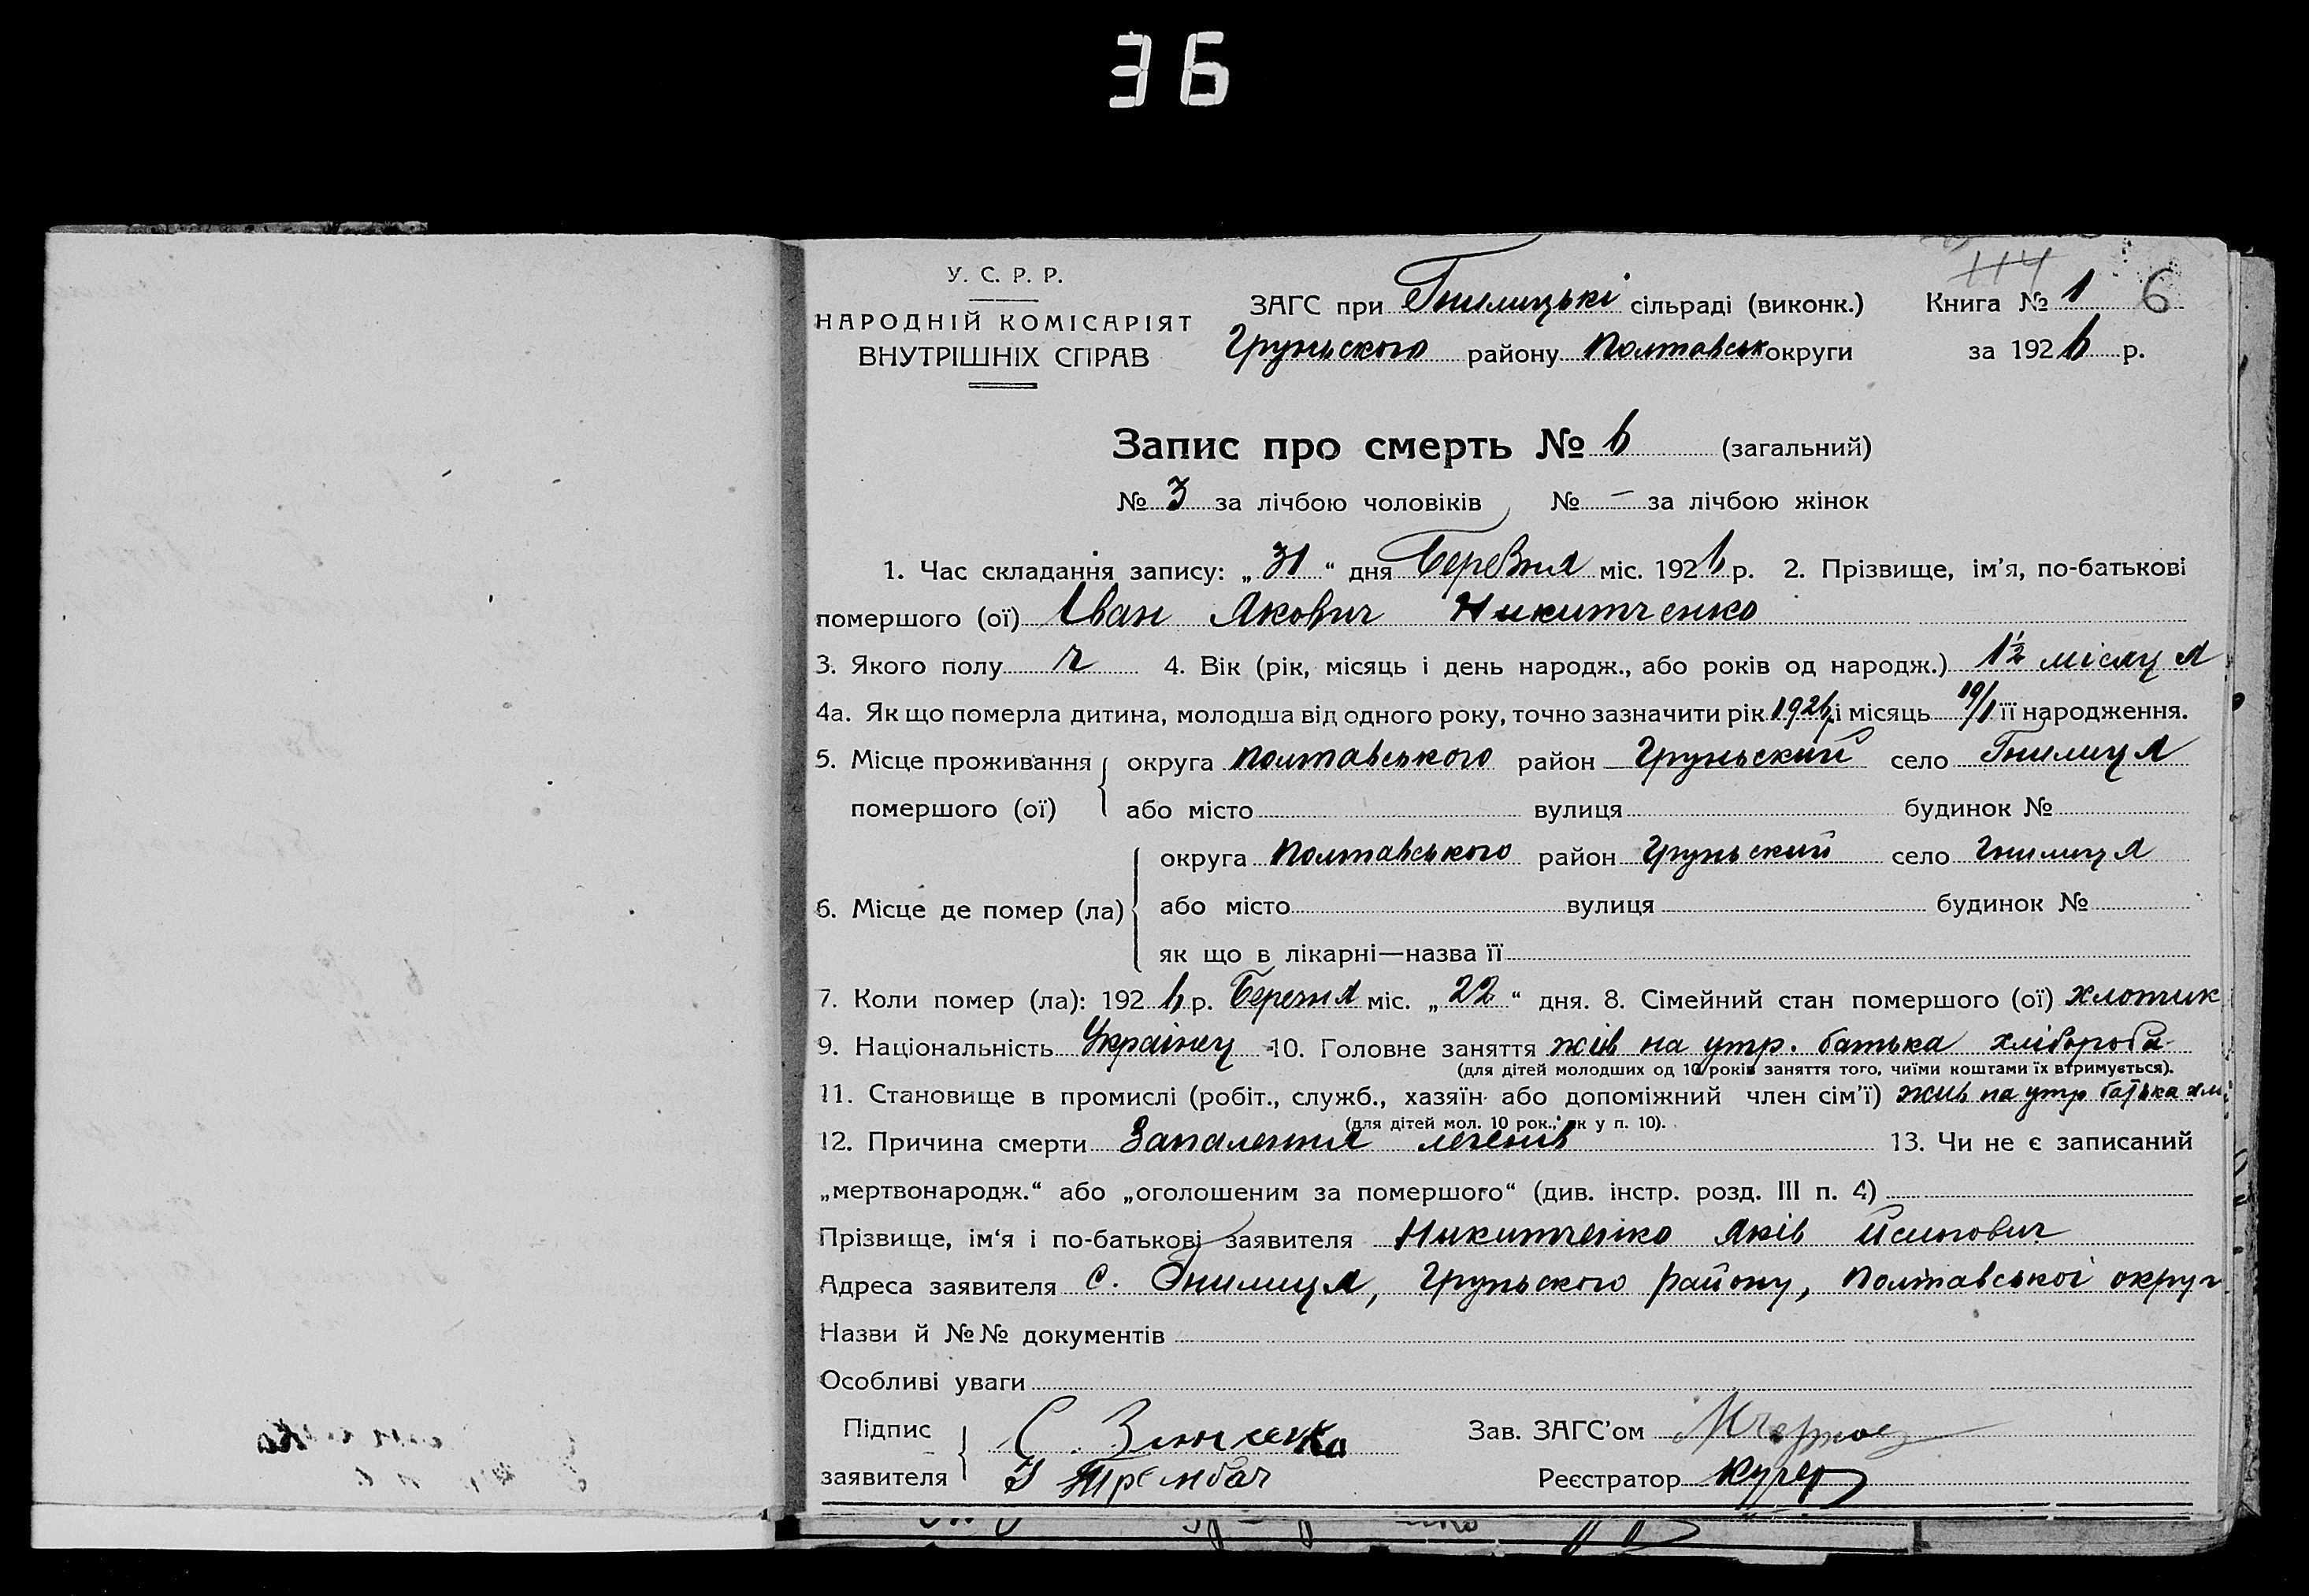 36
114
У. С. Р. Р.
НАРОДНІЙ КОМІСАРІЯТ
ВНУТРІШНІХ СПРАВ
ЗАГС при Гнилицькі сільраді (виконк.) Книга № 1 6
Груньского району Полтавськ округи за 1926 р.
Запис про смерть № 6 (загальний)
№ 3 за лічбою чоловіків № – за лічбою жінок
1. Час складання запису: „31“ дня Березня міс. 1926 р. 2. Прізвище, ім'я, по-батькові
помершого (ої) Іван Якович Никитченко
3. Якого полу ч 4. Вік (рік, місяць і день народж., або років од народж.) 1½ місяця
4а. Як що померла дитина, молодша від одного року, точно зазначити рік 1926 р. і місяць 19/I її народження.
5. Місце проживання помершого (ої) округа Полтавського район Груньский село Гнилиця
або місто вулиця будинок №
6. Місце де помер (ла) округа Полтавського район Груньский село Гнилиця
або місто вулиця будинок №
як що в лікарні—назва її
7. Коли помер (ла): 1926 р. Березня міс. „22“ дня. 8. Сімейний стан помершого (ої) хлопчик
9. Національність Українец 10. Головне заняття жив на утр. батька хлібороба
(для дітей молодших од 10 років заняття того, чиїми коштами їх втримується).
11. Становище в промислі (робіт., служб., хазяїн або допоміжний член сім'ї) жив на утр батька хлі
(для дітей мол. 10 рок., як у п. 10).
12. Причина смерти Запалення легенів 13. Чи не є записаний
„мертвонародж.“ або „оголошеним за помершого“ (див. інстр. розд. III п. 4)
Прізвище, ім'я і по-батькові заявителя Никитченко Яків Йсипович
Адреса заявителя с. Гнилиця, Груньского району, Полтавської округ
Назви й №№ документів
Особливі уваги
Підпис заявителя С. Зинченко Зав. ЗАГС'ом
І Трембач Реєстратор Кучер